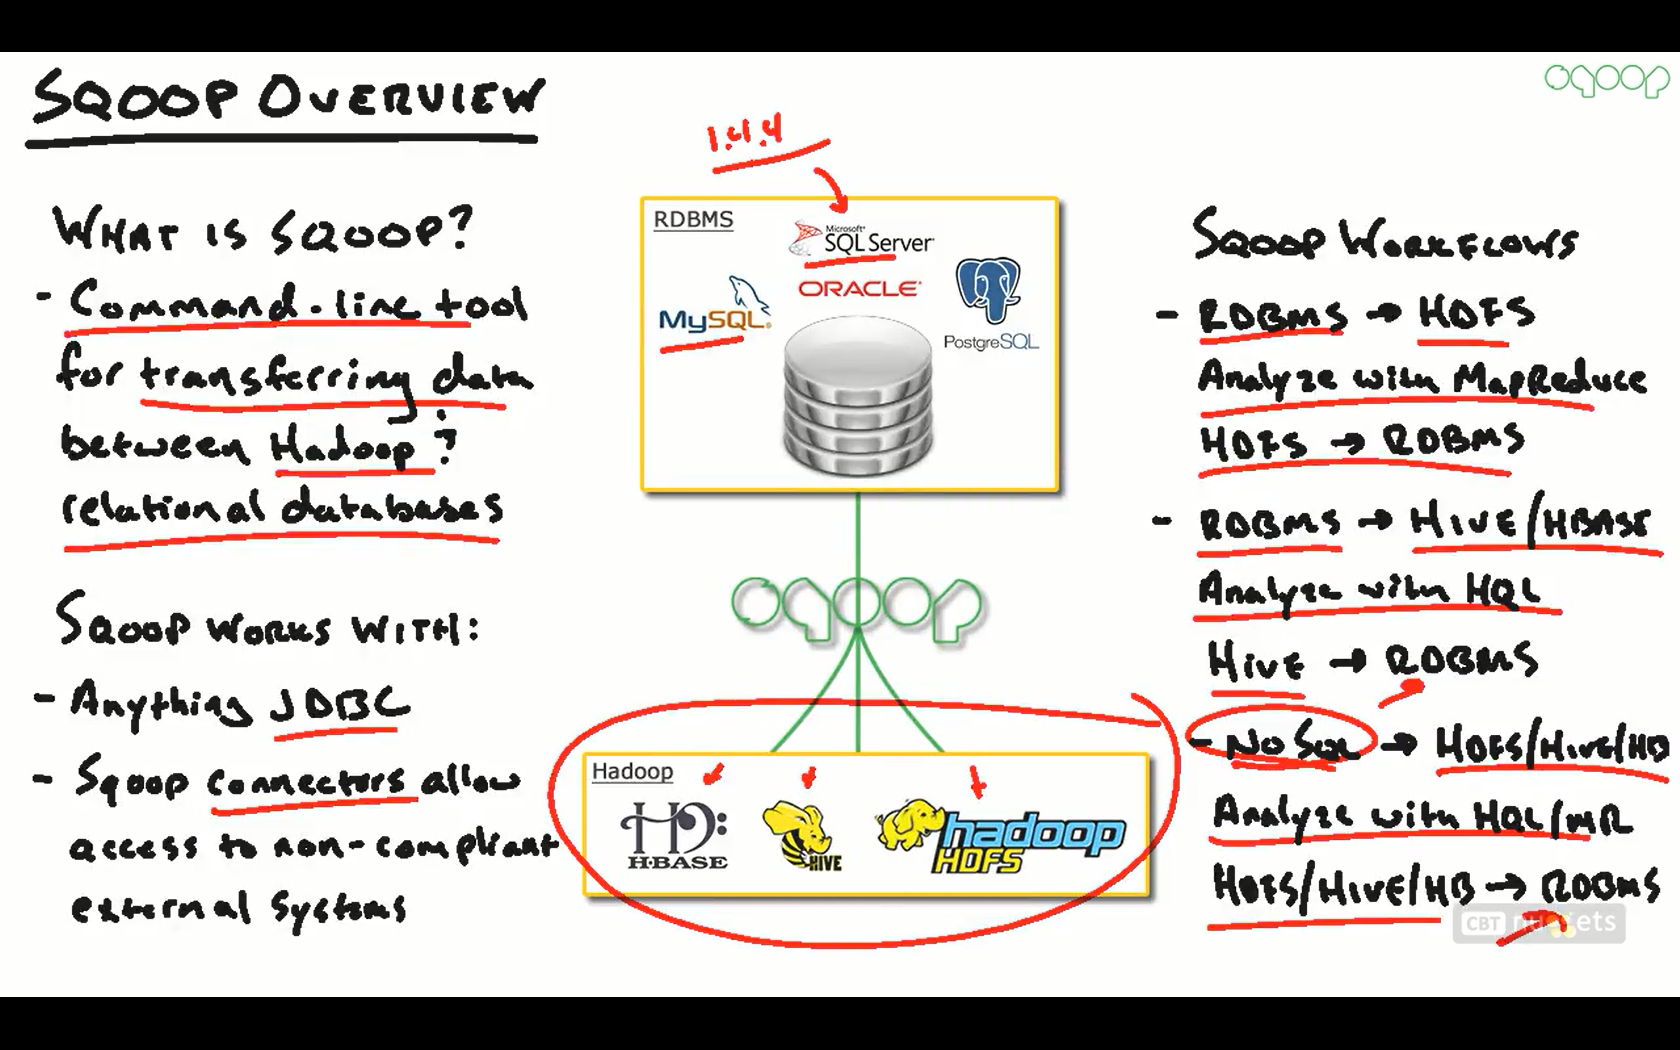 SQOOP OVERVIEW
sqoop
WHAT IS SQOOP?
- Command-line tool
for transferring data
between Hadoop &
relational databases
SQOOP WORKS WITH:
- Anything JDBC
- Sqoop connectors allow
access to non-compliant
external systems
1.4.4
RDBMS
Microsoft®
SQL Server®
ORACLE®
MySQL®
PostgreSQL
sqoop
Hadoop
H·BASE
HIVE
hadoop
HDFS
SQOOP WORKFLOWS
- RDBMS → HDFS
Analyze with MapReduce
HDFS → RDBMS
- RDBMS → HIVE/HBASE
Analyze with HQL
HIVE → RDBMS
- NoSQL → HDFS/Hive/HB
Analyze with HQL/MR
HDFS/HIVE/HB → RDBMS
CBT nuggets